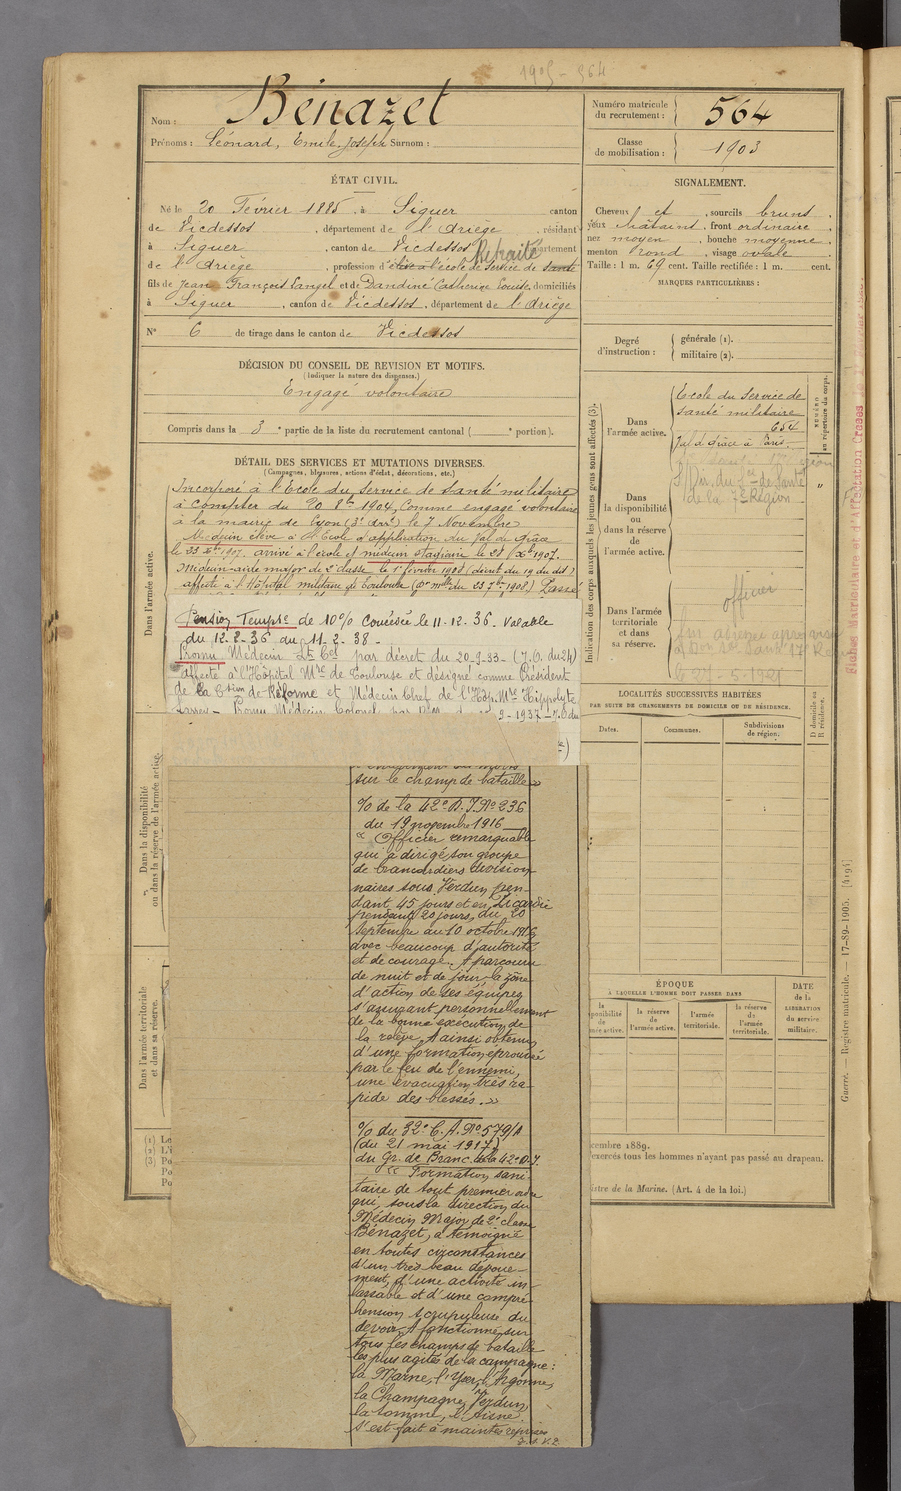 1905 - 564
Nom : Bénazet
Prénoms : Léonard, Emile, Joseph Surnom :
ÉTAT CIVIL.
Né le 20 Février 1885, à Siguer canton
de Vicdessos, département de l'Ariège, résidant
à Siguer, canton de Vicdessos, département
Retraité
de l'Ariège, profession d'élève à l'école de service de santé
fils de Jean François Pangel et de Dandine Catherine Louise, domiciliés
à Siguer, canton de Vicdessos, département de l'Ariège
N° 6 de tirage dans le canton de Vicdessos
DÉCISION DU CONSEIL DE REVISION ET MOTIFS.
(Indiquer la nature des dispenses.)
Engagé volontaire
Compris dans la 3e partie de la liste du recrutement cantonal ( e portion).
DÉTAIL DES SERVICES ET MUTATIONS DIVERSES.
(Campagnes, blessures, actions d'éclat, décorations, etc.)
Dans l'armée active.
Incorporé à l'Ecole du service de santé militaire
à compter du 20 8bre 1904, comme engagé volontaire
à la mairie de Lyon (3e arrt) le 7 Novembre
Médecin élève à l'Ecole d'application du Val de Grâce
le 23 Xbre 1907. arrivé à l'école et médecin stagiaire le 28 Xbre 1907.
Médecin-aide major de 2e classe le 1er février 1908 (décret du 19 du dit)
affecté à l'Hôpital militaire de Toulouse (Don mlle du 23 7bre 1908) Passé
Pension Tempre de 10% Concédée le 11-12-36. Valable
du 12-2-36 au 11-2-38 -
Promu Médecin Lt Cel par décret du 20-9-33 - (J.O. du 24)
Affecté à l'Hôpital Mre de Toulouse et désigné comme Président
de la Csion de Réforme et Médecin Chef de l'Hôp. Mre Hippolyte
Larrey - Promu Médecin Colonel par 9-1937 - J.O. du
Dans la disponibilité
ou dans la réserve de l'armée active.
Dans l'armée territoriale
et dans sa réserve.
sur le champ de bataille »
% de la 42e D.I. No 236
du 19 novembre 1916
« Officier remarquable
qui a dirigé son groupe
de brancardiers division
naires sous Verdun pen-
dant 45 jours et en Picardie
pendant 20 jours, du 20
Septembre au 10 octobre 1916
avec beaucoup d'autorité
et de courage. A parcouru
de nuit et de jour la zône
d'action de ses équipes
s'assurant personnellement
de la bonne exécution de
la relève. A ainsi obtenu
d'une formation éprouvée
par le feu de l'ennemi,
une évacuation très ra-
pide des blessés. »
% du 32e C.A. No 579/A
(du 21 mai 1917)
du Gr. de Branc. de la 42e D.I.
« Formation sani-
taire de tout premier ordre
qui, sous la direction du
Médecin Major de 2e classe
Bénazet, a témoigné
en toutes circonstances
d'un très beau dévoue-
ment, d'une activité in-
lassable et d'une compré
hension scrupuleuse du
devoir. A fonctionné sur
tous les champs de bataille
les plus agités de la campagne :
la Marne, l'Yser, l'Argonne,
la Champagne, Verdun,
la Somme, l'Aisne.
S'est fait à maintes reprises
T.S.V.P.
Numéro matricule
du recrutement : 564
Classe
de mobilisation : 1903
SIGNALEMENT.
Cheveux et, sourcils bruns,
yeux châtains, front ordinaire,
nez moyen, bouche moyenne,
menton rond, visage ovale.
Taille : 1 m. 69 cent. Taille rectifiée : 1 m. cent.
MARQUES PARTICULIÈRES :
Degré
d'instruction :
générale (1).
militaire (2).
Indication des corps auxquels les jeunes gens sont affectés (3).
NUMÉRO
au répertoire du corps.
Dans
l'armée active.
Ecole du Service de
santé militaire
654
Val de Grâce à Paris.
Dans
la disponibilité
ou
dans la réserve
de
l'armée active.
S/Dir. du Sce de Santé
de la 7e Région
"
Dans l'armée
territoriale
et dans
sa réserve.
officier
le 27-5-1921
Fiches Matriculaire et d'Affectation Créées le
LOCALITÉS SUCCESSIVES HABITÉES
PAR SUITE DE CHANGEMENTS DE DOMICILE OU DE RÉSIDENCE.
Dates.
Communes.
Subdivisions
de région.
D domicile ou
R résidence.
ÉPOQUE
À LAQUELLE L'HOMME DOIT PASSER DANS
DATE
de la
LIBÉRATION
du service
militaire.
la
disponibilité
de
l'armée active.
la réserve
de
l'armée active.
l'armée
territoriale.
la réserve
de
l'armée
territoriale.
(1) Le
(2) L'i
(3) Po
Po
Po
décembre 1889.
exercés tous les hommes n'ayant pas passé au drapeau.
istre de la Marine. (Art. 4 de la loi.)
Guerre. — Registre matricule. — 17-89-1905. [4194]